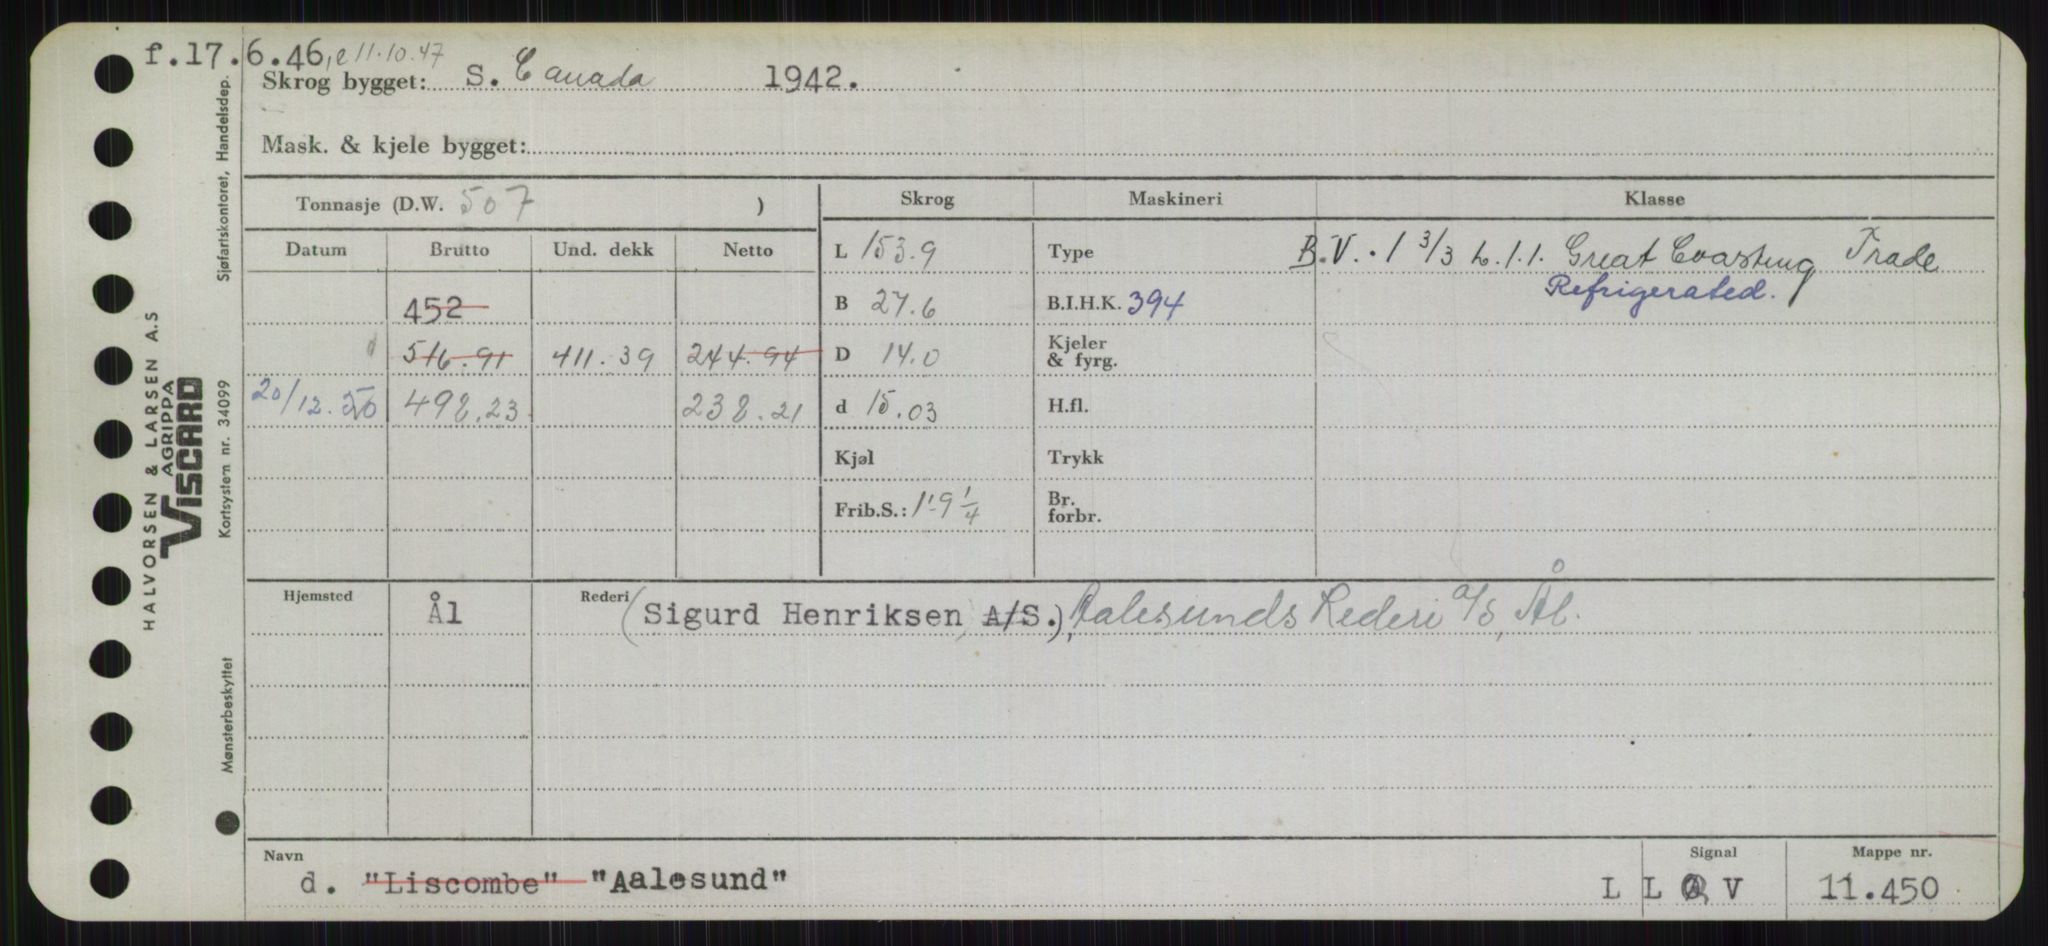 f.17.6.46, e 11.10.47
Skrog bygget: S. Canada 1942.
Mask. & kjele bygget:
Tonnasje (D.W. 507 )
Skrog Maskineri Klasse
Datum Brutto Und. dekk Netto
L 153.9 Type B.V. . 1 3/3 L.1.1. Great Coasting Trade
Refrigerated.
452 B 27.6 B.I.H.K. 394
516.91 411.39 244.94 D 14.0 Kjeler & fyrg.
20/12.50 498.23 238.21 d 15.03 H.fl.
Kjøl Trykk
Frib.S.: 1'-9 1/4 Br. forbr.
Hjemsted Ål Rederi (Sigurd Henriksen A/S.), Aalesunds Rederi a/s, Ål.
Navn
d. "Liscombe" "Aalesund"
Signal
L L V
Mappe nr.
11.450
Sjøfartskontoret, Handelsdep.
HALVORSEN & LARSEN A.S
AGRIPPA
VISCARD
Kortsystem nr. 34099
Mønsterbeskyttet